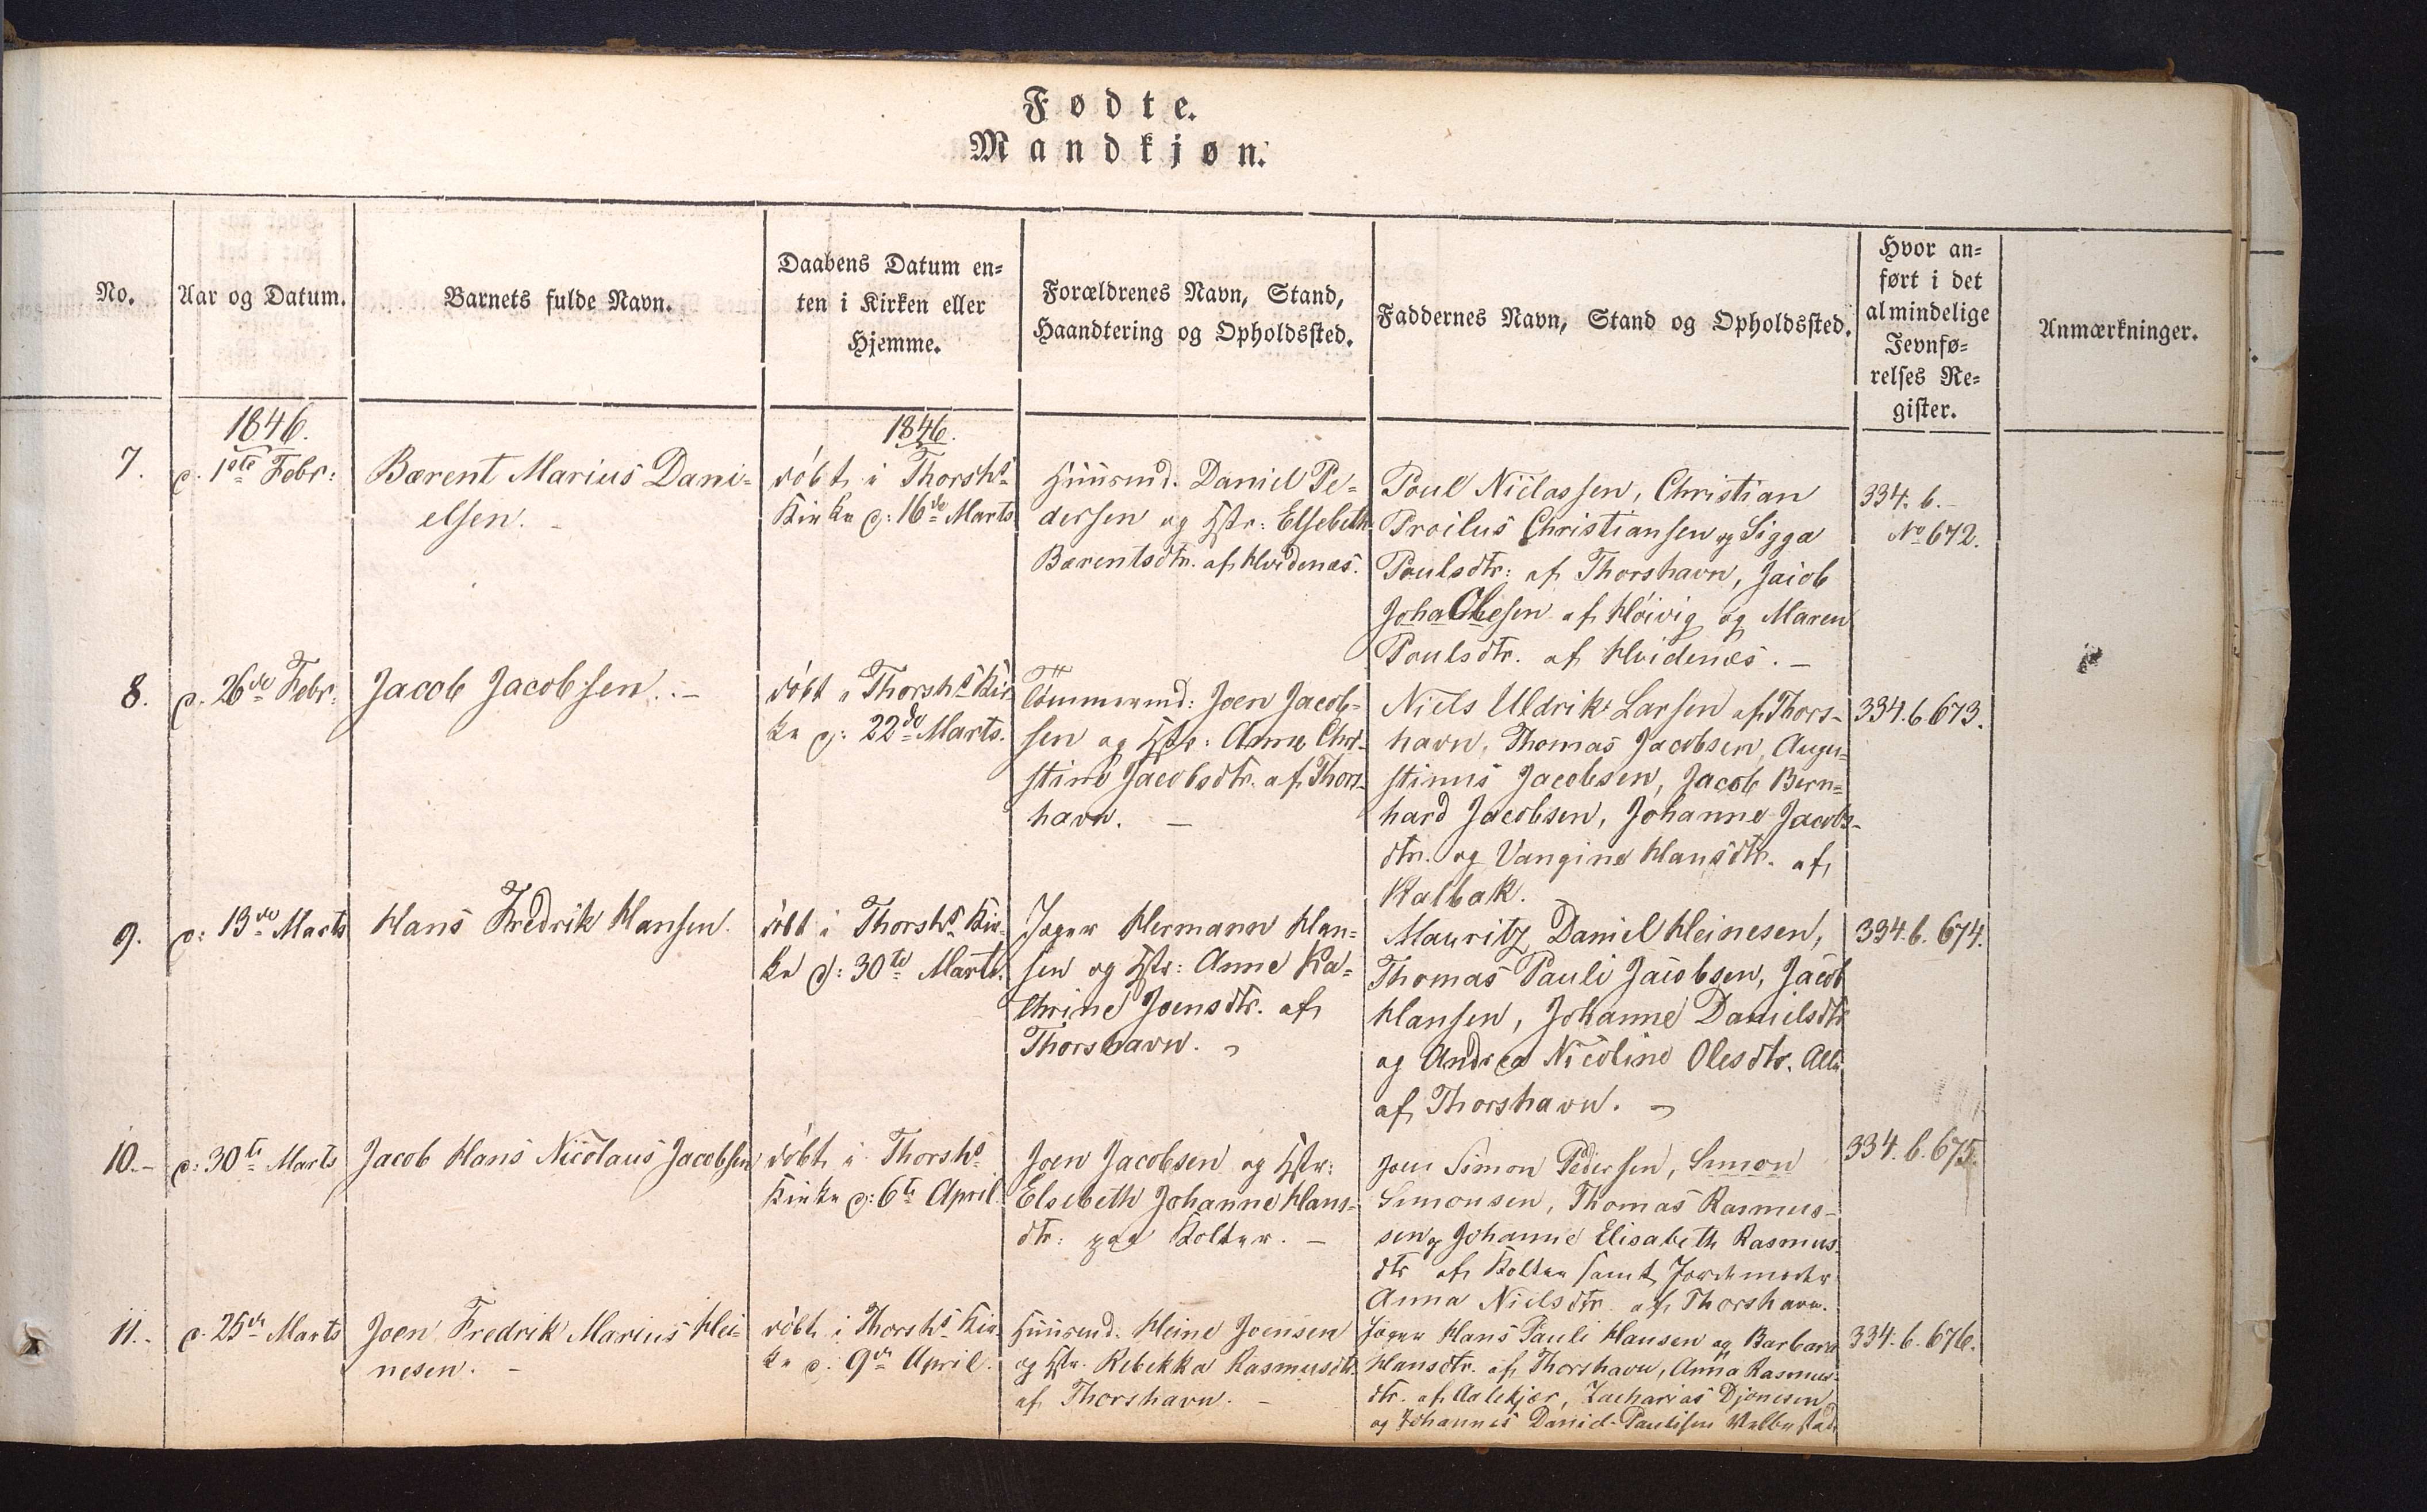 Fødte.
Mandkjøn.
No.
Aar og Datum.
Barnets fulde Navn.
Daabens Datum en-
ten i Kirken eller
Hjemme.
Forældrenes Navn, Stand,
Haandtering og Opholdssted.
Faddernes Navn, Stand og Opholdssted.
Hvor an-
ført i det
almindelige
Jevnfø-
relses Re-
gister.
Anmærkninger.
1846.
1846.
7.
d. 1ste Febr:
Bærent Marius Dani-
elsen.
døbt i Thorshs
Kirke d: 16de Marts
Huusmd. Daniel Pe-
dersen og Hstr: Elsebeth
Bærentsdtr. af Hvidenæs.
Poul Niclassen, Christian
Proilus Christiansen og Sigga
Poulsdtr: af Thorshavn, Jacob
Joha Olesen af Høivig og Maren
Poulsdtr. af Hvidenæs. –
334. 6. –
No 672.
8.
d. 26de Febr:
Jacob Jacobsen. –
døbt i Thorshs Kir-
ke d: 22de Marts.
Tømmermd: Joen Jacob-
sen og Hstr: Anne Chri-
stine Jacobsdtr. af Thors-
havn. –
Niels Uldrik Larsen af Thors-
havn, Thomas Jacobsen, Augu-
stinus Jacobsen, Jacob Bern-
hard Jacobsen, Johanne Jacobs-
dtr. og Vangine Hansdtr. af
Kalbak.
334. 6. 673.
9.
d: 13de Marts
Hans Fredrik Hansen.
døbt i Thorshs Kir-
ke d: 30te Marts.
Jæger Hermann Han-
sen og Hstr: Anne Ka-
thrine Joensdtr. af
Thorshavn.
Mauritz Daniel Heinesen,
Thomas Pauli Jacobsen, Jacob
Hansen, Johanne Danielsdtr
og Andrea Nicoline Olesdtr. Alle
af Thorshavn.
334. 6. 674.
10. –
d: 30te Marts
Jacob Hans Nicolaus Jacobsen
døbt i Thorshs
Kirke d: 6te April.
Joen Jacobsen og Hstr:
Elsebeth Johanne Hans-
dtr: paa Kolter. –
Joen Simon Pedersen, Simon
Simonsen, Thomas Rasmus-
sen og Johanne Elisabeth Rasmus-
dtr af Kolter samt Jordemoder
Anna Nielsdtr. af Thorshavn.
334. 6. 675.
11. –
d. 25de Marts
Joen Fredrik Marius Hei-
nesen. –
døbt i Thorshs Kir-
ke d. 9de April.
Huusmd. Heine Joensen
og Hstr. Rebekka Rasmusdtr.
af Thorshavn. –
Jæger Hans Pauli Hansen og Barbara
Hansdtr. af Thorshavn, Anna Rasmus-
dtr. af Aalekjær, Zacharias Djonesen
og Johannes Daniel Paulsen Velbestad
334. 6. 676.